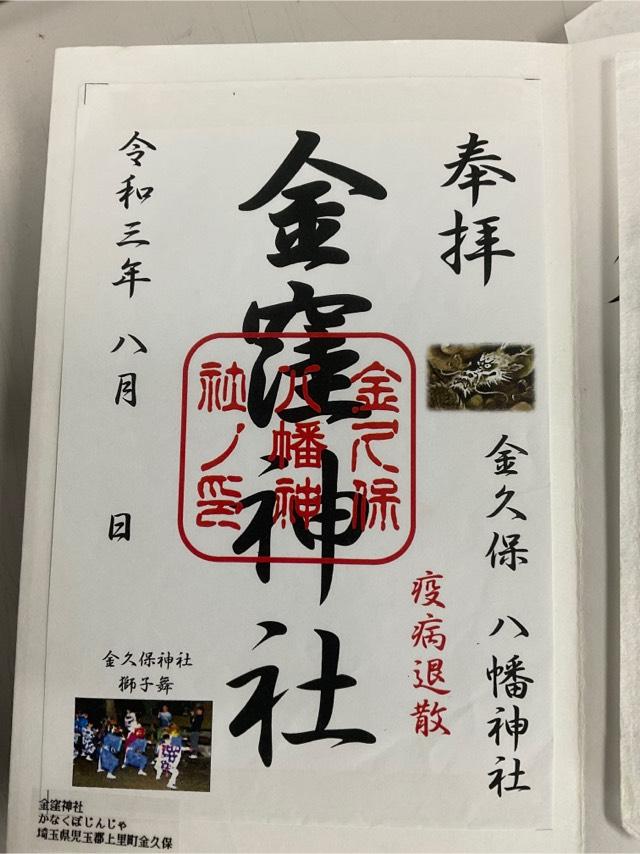 奉拝
金久保 八幡神社
疫病退散
金窪神社
金久保
八幡神
社ノ印
令和三年 八月 日
金久保神社
獅子舞
金窪神社
かなくぼじんじゃ
埼玉県児玉郡上里町金久保